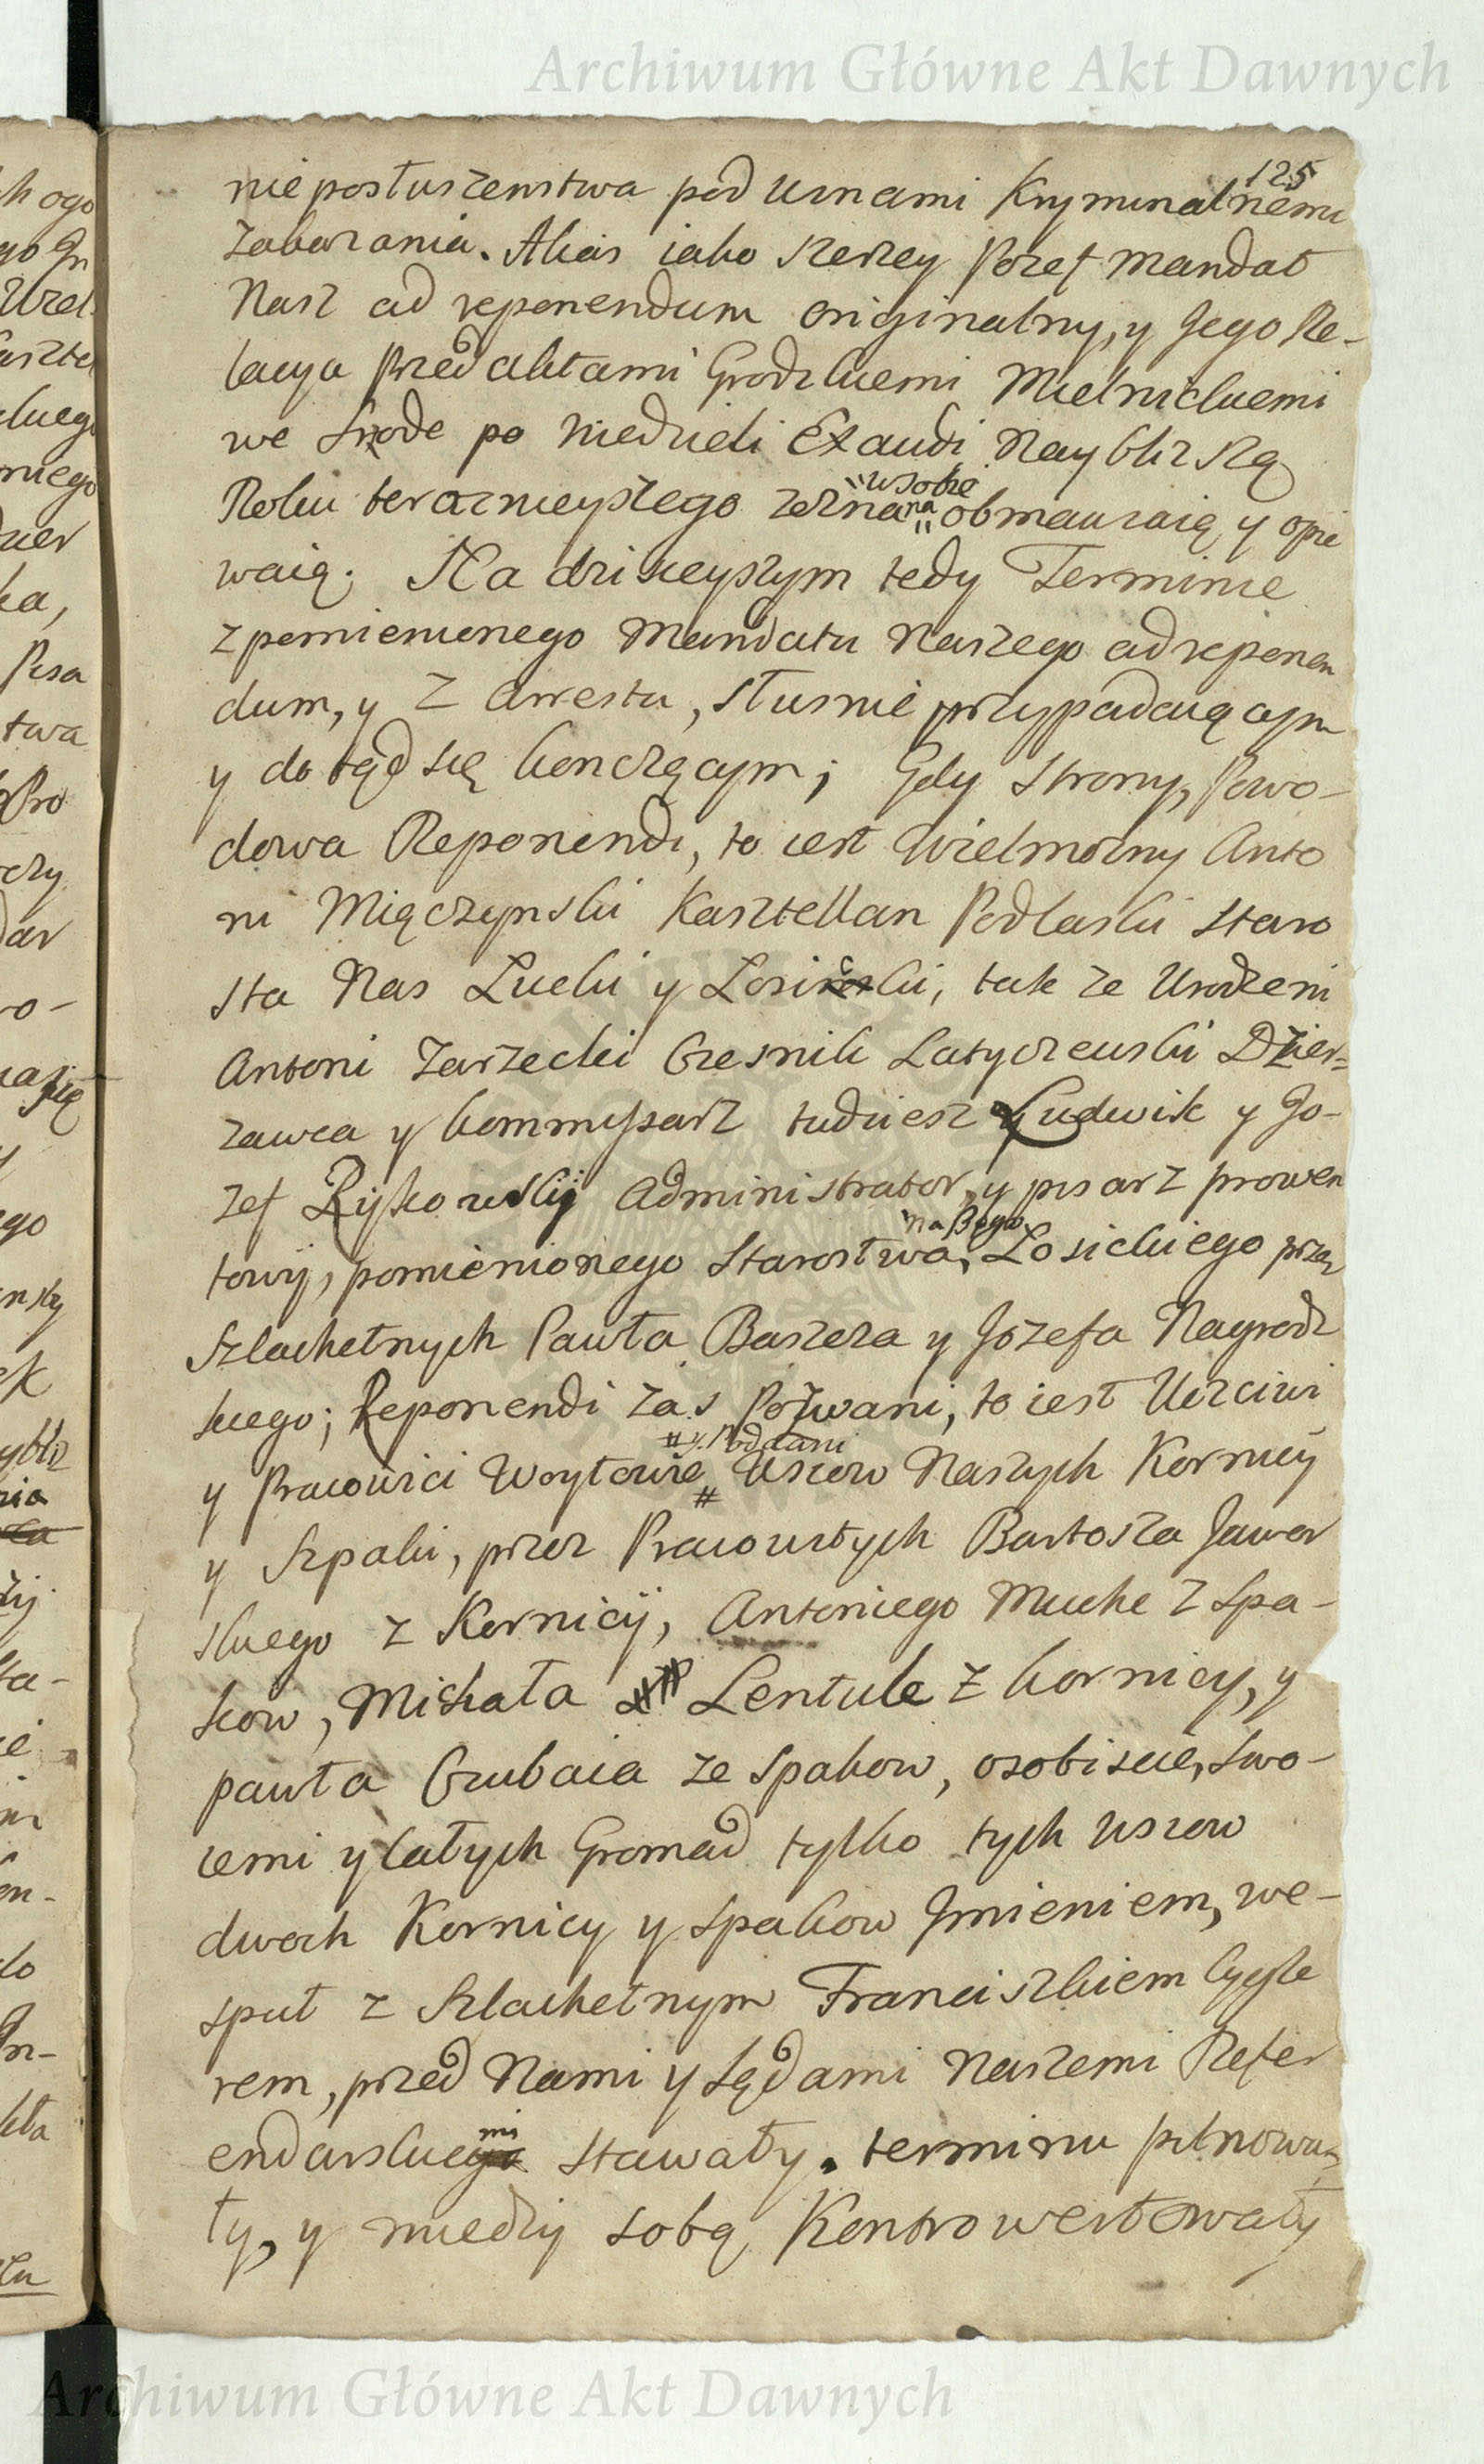 Archiwum Główne Akt Dawnych
125
nieposłuszenstwa pod winami Kryminalnemi
zakazania. Alias iako szerzey Pozef mandat
Nasz ad reponendum originalny, y Jego Re-
lacya Przed aktami Grodzkiemi Mielnickiemi
we Srode po Niedzieli Exaudi Nayblizszą
Roku teraznieyszego zeznana w sobie obmawiaią y opie
waią. Na dzisieyszym tedy Terminie
z pomienionego Mandatu Naszego ad reponen
dum, y z Arrestu, słusnie przypadaiącym
y dotąd się konczącym; Gdy Strony, Powo-
dowa Reponendi, to iest Wielmozny Anto
ni Miączynski Kasztellan Podlaski Staro
sta Nas Lucki y Losicki, tak ze Urodzeni
Antoni Zarzecki Czesnik Latyczewski Dzier=
zawca y kommissarz tudziesz Ludwik y Jo-
zef Ryskowskij Administrator, y pisarz prowen
towij, pomienionego Starostwa naszego Losickiego przez
Szlachetnych Pawła Baszeza y Jozefa Nagrodz
kiego; Reponendi zas Pozwani, to iest Uczciwi
y Pracowici Woytowie # y Poddani # Wsiow Naszych Kornicy
y Szpaki, przez Pracowitych Bartosza Jawor
skiego z Kornicij, Antoniego Muche z Spa-
kow, Michała Lentule z kornicy, y
pawła Czubaia ze Spakow, osobiscie, swo-
iemi y całych Gromad tylko tych wsiow
dwoch Kornicy y Spakow Jmieniem, we-
spuł z Szlachetnym Franciszkiem Cygle
rem, przed Nami y Sądami Naszemi Refer
endarskiemi stawały, terminu pilnowa
ły, y miedzy sobą Kontrowertowały
Archiwum Główne Akt Dawnych